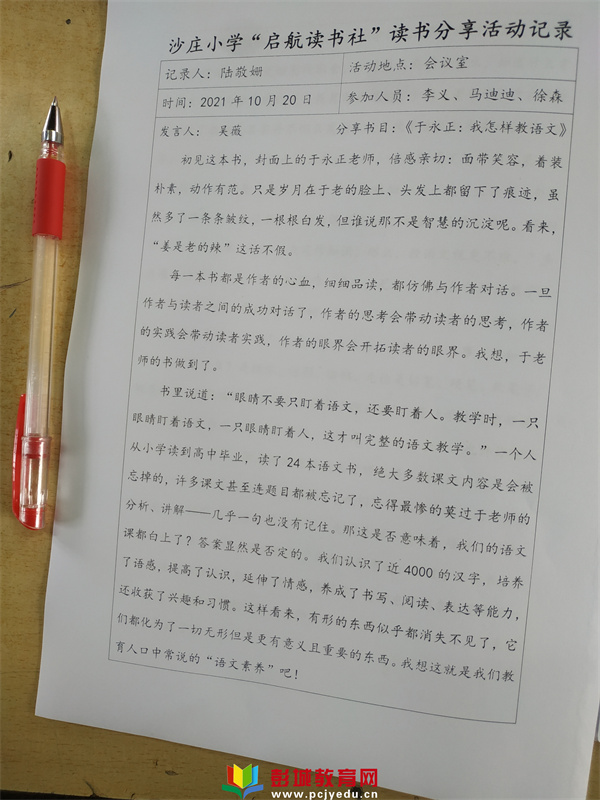 沙庄小学“启航读书社”读书分享活动记录
记录人：陆敬姗 活动地点：会议室
时间：2021年10月20日 参加人员：李义、马迪迪、徐森
发言人： 吴薇 分享书目：《于永正：我怎样教语文》
初见这本书，封面上的于永正老师，倍感亲切：面带笑容，着装
朴素，动作有范。只是岁月在于老的脸上、头发上都留下了痕迹，虽
然多了一条条皱纹，一根根白发，但谁说那不是智慧的沉淀呢。看来，
“姜是老的辣”这话不假。
每一本书都是作者的心血，细细品读，都仿佛与作者对话。一旦
作者与读者之间的成功对话了，作者的思考会带动读者的思考，作者
的实践会带动读者实践，作者的眼界会开拓读者的眼界。我想，于老
师的书做到了。
书里说道：“眼睛不要只盯着语文，还要盯着人。教学时，一只
眼睛盯着语文，一只眼睛盯着人，这才叫完整的语文教学。”一个人
从小学读到高中毕业，读了24本语文书，绝大多数课文内容是会被
忘掉的，许多课文甚至连题目都被忘记了，忘得最惨的莫过于老师的
分析、讲解——几乎一句也没有记住。那这是否意味着，我们的语文
课都白上了？答案显然是否定的。我们认识了近4000的汉字，培养
了语感，提高了认识，延伸了情感，养成了书写、阅读、表达等能力，
还收获了兴趣和习惯。这样看来，有形的东西似乎都消失不见了，它
们都化为了一切无形但是更有意义且重要的东西。我想这就是我们教
育人口中常说的“语文素养”吧！
彭城教育网
www.pcjyedu.cn